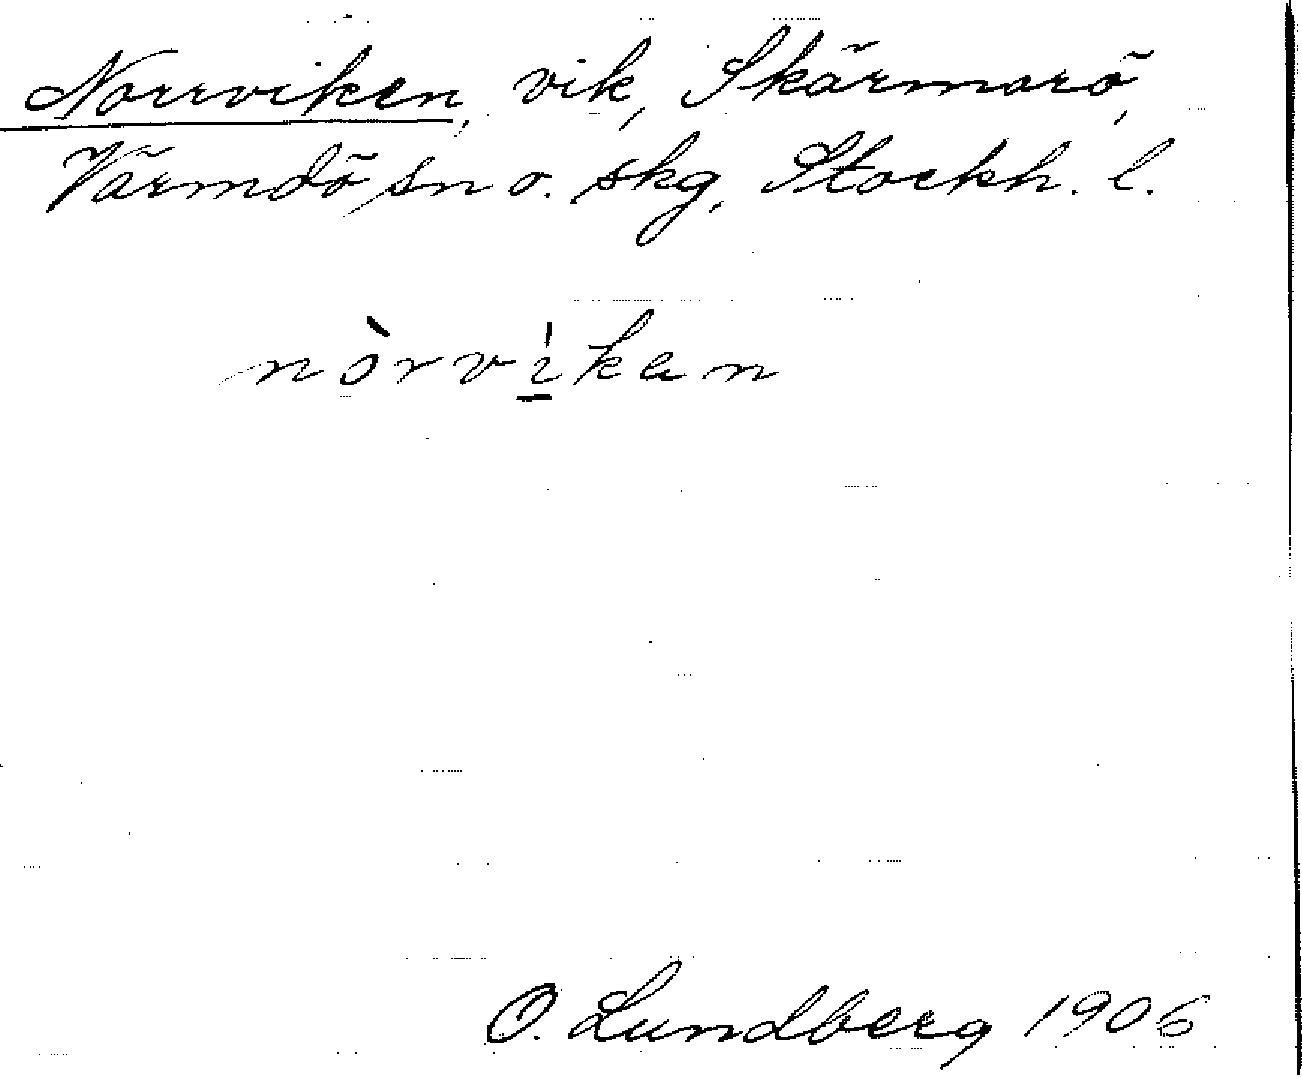 Norrviken, vik, Skärmarö,
Värmdö sn o. skg, Stockh. l.
nòrvikan
O. Lundberg 1906